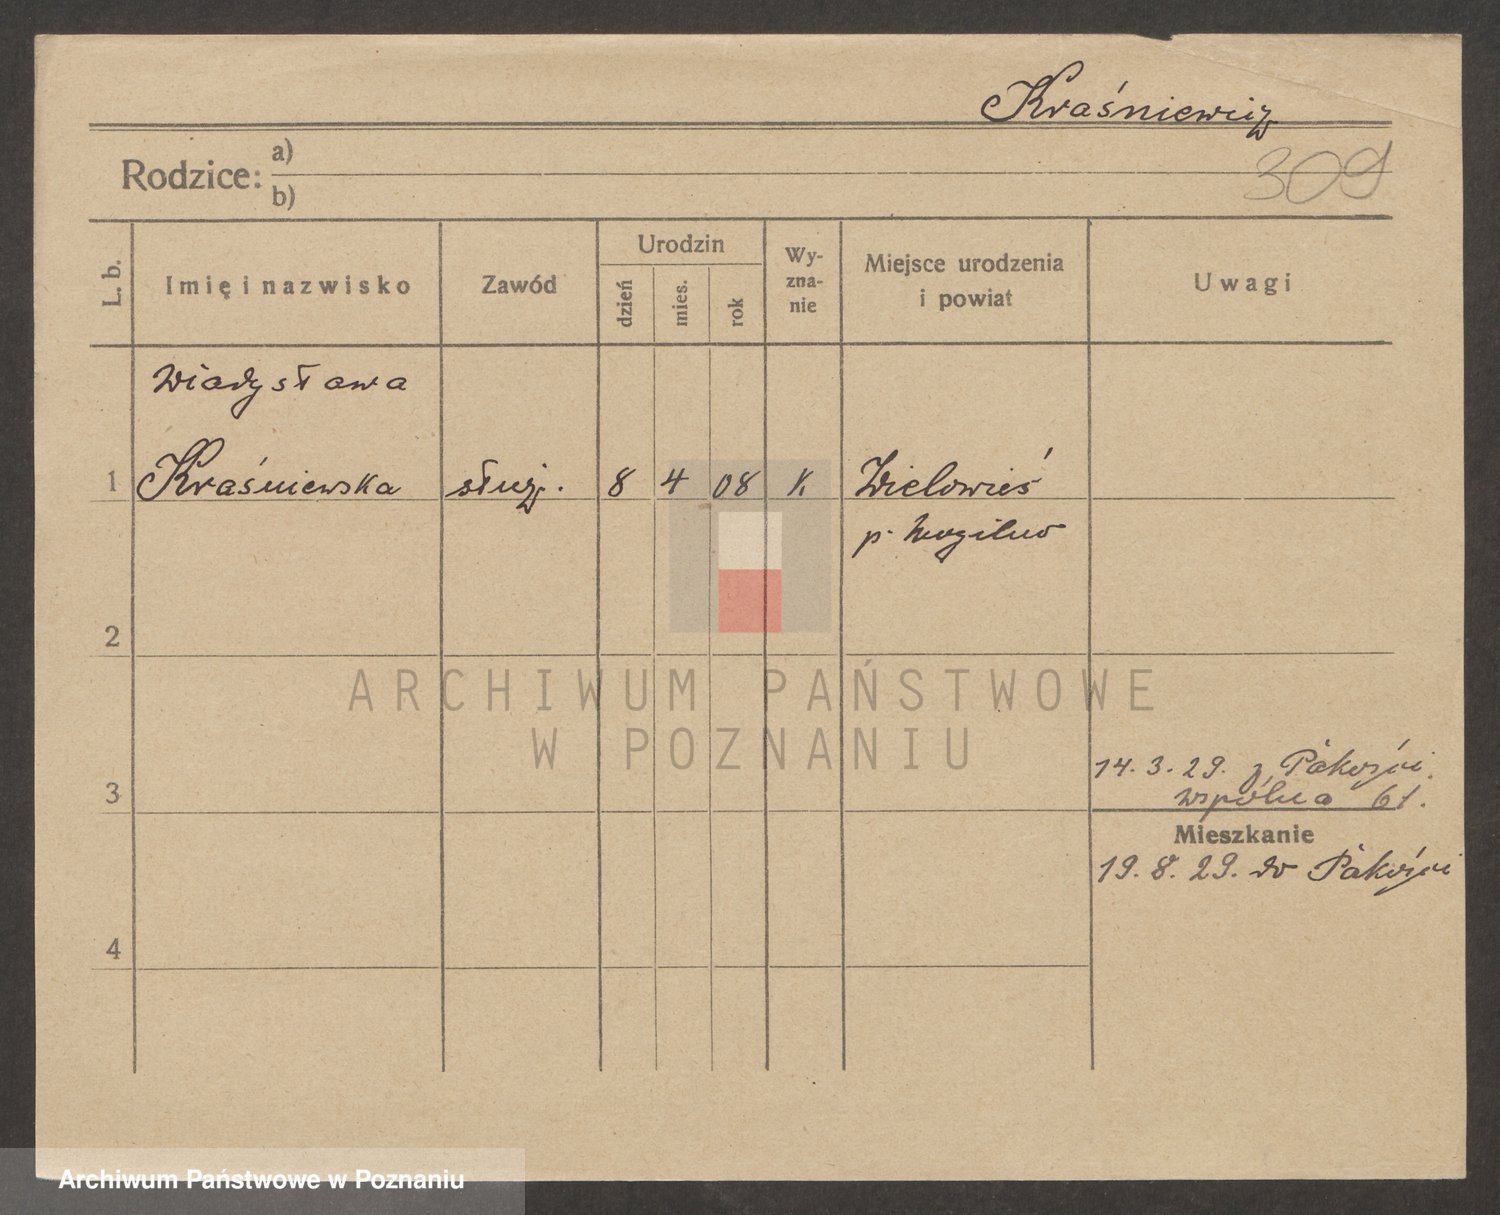 Kraśniewicz
309
Rodzice: a)
b)
L. b.
Imię i nazwisko
Zawód
Urodzin
dzień
mies.
rok
Wy-
zna-
nie
Miejsce urodzenia
i powiat
Uwagi
Władysława
1 Kraśniewska służ. 8 4 08 K Wielowieś
p. Mogilno
2
ARCHIWUM PAŃSTWOWE
W POZNANIU
14. 3. 29. z Pakości.
3 wspólna 61.
Mieszkanie
19. 8. 29. do Pakości
4
Archiwum Państwowe w Poznaniu